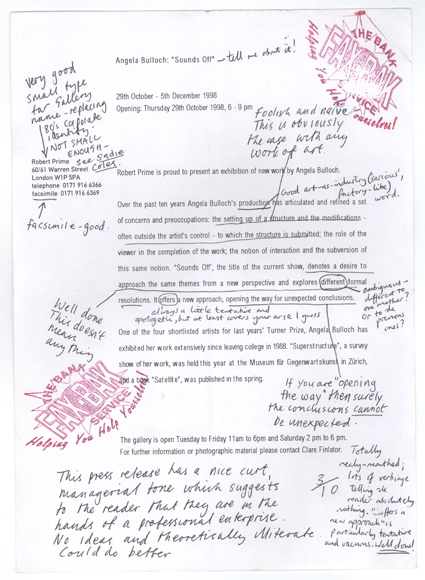 Angela Bulloch: "Sounds Off" - tell me about it!
THE BANK
FAXBAK
SERVICE
Helping You Help Yourselves!
very good
small type
for Gallery
name - replacing
80's corporate
identity.
NOT SMALL
ENOUGH -
see Sadie
Coles.
29th October - 5th December 1998
Opening: Thursday 29th October 1998, 6 - 9 pm
Foolish and naive
This is obviously
the case with any
work of art
Robert Prime
60/61 Warren Street
London W1P 5PA
telephone 0171 916 6366
facsimile 0171 916 6369
facsimile - good.
Robert Prime is proud to present an exhibition of new work by Angela Bulloch.
Good art-as-industry (serious,
factory-like)
word.
Over the past ten years Angela Bulloch's production has articulated and refined a set
of concerns and preoccupations: the setting up of a structure and the modifications -
often outside the artist's control - to which the structure is submitted; the role of the
viewer in the completion of the work; the notion of interaction and the subversion of
this same notion. "Sounds Off", the title of the current show, denotes a desire to
approach the same themes from a new perspective and explores different formal
resolutions. It offers a new approach, opening the way for unexpected conclusions.
ambiguous -
different to
one another?
Or to do
previous
ones?
always a little tentative and
apologetic, but at least covers your arse I guess
Well done
This doesn't
mean
anything
One of the four shortlisted artists for last years' Turner Prize, Angela Bulloch has
exhibited her work extensively since leaving college in 1988. "Superstructure", a survey
show of her work, was held this year at the Museum für Gegenwartskunst in Zürich,
and a book "Satellite", was published in the spring.
THE BANK
FAXBAK
SERVICE
Helping You Help Yourselves!
If you are "opening
the way" then surely
the conclusions cannot
be unexpected.
The gallery is open Tuesday to Friday 11am to 6pm and Saturday 2 pm to 6 pm.
For further information or photographic material please contact Clare Finlator.
This press release has a nice curt,
managerial tone which suggests
to the reader that they are in the
hands of a professional enterprise.
No ideas and theoretically illiterate.
Could do better
3/10
Totally
mealy-mouthed;
lots of verbiage
Telling the
reader absolutely
nothing. "..offers a
new approach" is
particularly tentative
and vacuous. Well done!